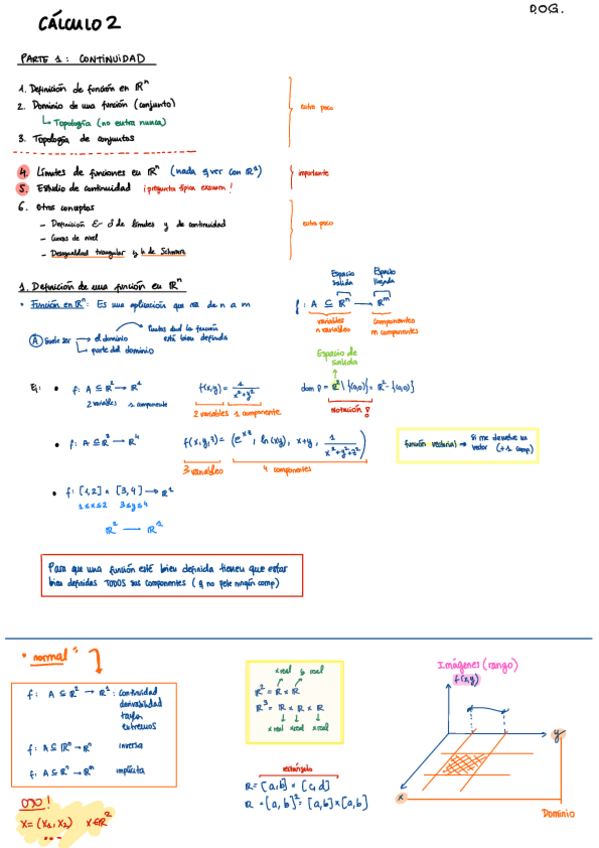 D.O.G.
CÁLCULO 2
PARTE 1: CONTINUIDAD
1. Definición de función en ℝⁿ
2. Dominio de una función (conjunto)
↳ Topología (no entra nunca)
3. Topología de conjuntos
entra poco
4. Límites de funciones en ℝⁿ (nada q ver con ℝ¹)
5. Estudio de continuidad ¡pregunta típica examen!
importante
6. Otros conceptos
- Definición ε-δ de límites y de continuidad
- Curvas de nivel
- Desigualdad triangular y h de Schwarz
entra poco
1. Definición de una función en ℝⁿ
• Función en ℝⁿ: Es una aplicación que va de n a m
Espacio salida
Espacio llegada
f: A ⊆ ℝⁿ → ℝᵐ
variables
n variables
componentes
m componentes
A Suele ser → el dominio
↳ parte del dominio
Puntos dnd la función
está bien definida
Espacio de salida
Ej: • f: A ⊆ ℝ² → ℝ¹
2 variables 1 componente
f(x,y) = 1/(x²+y²)
2 variables 1 componente
dom f = ℝ² \ {(0,0)} = ℝ² - {(0,0)}
Notación!
• f: A ⊆ ℝ³ → ℝ⁴
f(x,y,z) = (e^xz, ln(xy), x+y, 1/(x²+y²+z²))
3 variables
4 componentes
función vectorial → Si me devuelve un vector (+1 comp)
• f: [1,2] × [3,4] → ℝ¹
1≤x≤2 3≤y≤4
ℝ² → ℝ¹
Para que una función esté bien definida tienen que estar
bien definidas TODOS sus componentes (q no pete ningún comp)
"normal"
f: A ⊆ ℝⁿ → ℝ¹: continuidad
derivabilidad
taylor
extremos
f: A ⊆ ℝⁿ → ℝⁿ inversa
f: A ⊆ ℝⁿ → ℝᵐ implícita
OJO!
X = (x₁, x₂) x∈ℝ²
...
x real y real
ℝ² = ℝ × ℝ
ℝ³ = ℝ × ℝ × ℝ
x real x real x real
rectángulo
R = [a,b] × [c,d]
R = [a,b]² = [a,b] × [a,b]
Imágenes (rango)
f(x,y)
y
x
Dominio